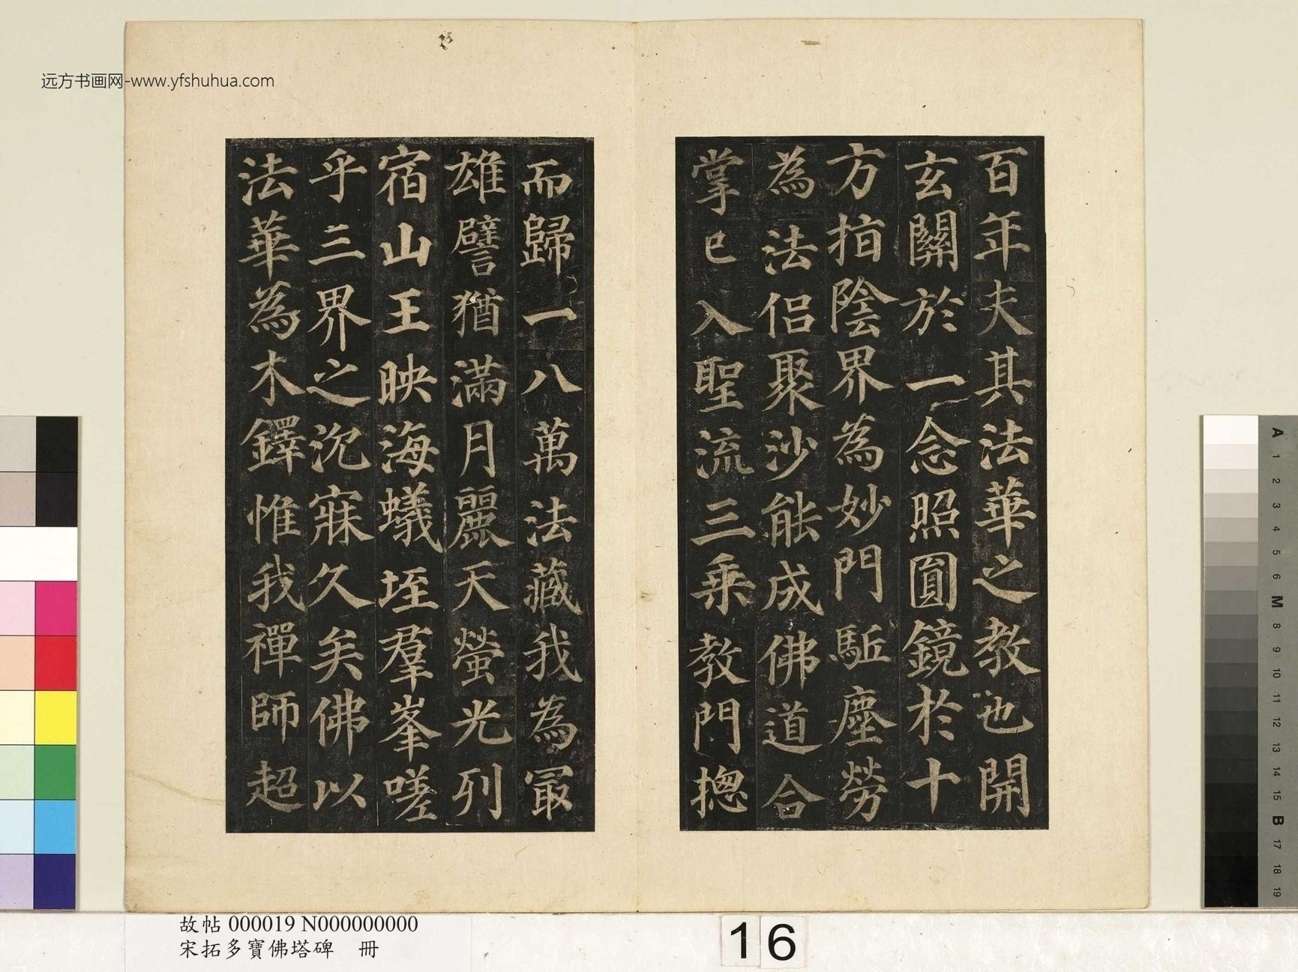 远方书画网-www.yfshuhua.com
百年夫其法華之教也開
玄關於一念照圓鏡於十
方指陰界為妙門駈塵勞
為法侣聚沙能成佛道合
掌已入聖流三乘教門揔
而歸一八萬法藏我為冣
雄譬猶滿月麗天螢光列
宿山王映海蟻垤羣峯嗟
乎三界之沉寐久矣佛以
法華為木鐸惟我禪師超
故帖 000019 N000000000
宋拓多寶佛塔碑 冊
16
A
1
2
3
4
5
6
M
8
9
10
11
12
13
14
15
B
17
18
19